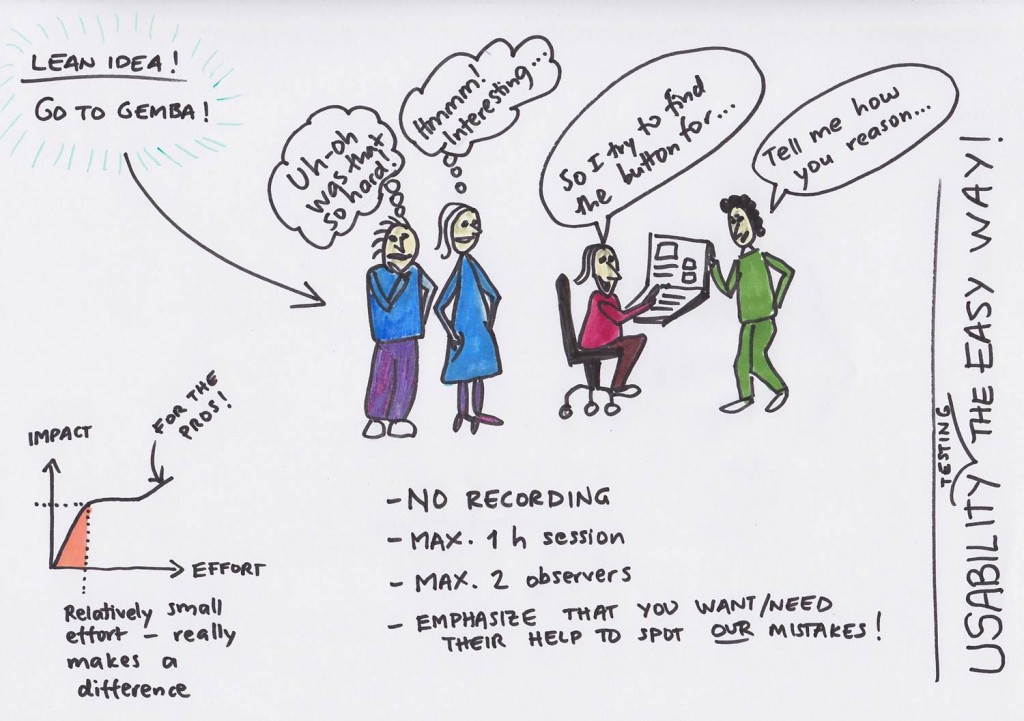 LEAN IDEA!
GO TO GEMBA!
Uh-oh
was that
so hard!
Hmmmm!
Interesting...
So I try to find
the button for...
Tell me how
you reason...
IMPACT
FOR THE
PROS!
EFFORT
Relatively small
effort – really
makes a
difference
- NO RECORDING
- MAX. 1 h session
- MAX. 2 observers
- EMPHASIZE THAT YOU WANT/NEED
THEIR HELP TO SPOT OUR MISTAKES!
USABILITY TESTING THE EASY WAY!